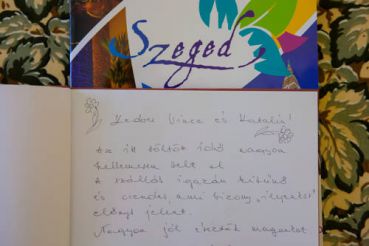 Szeged
Kedves Vince és Katalin!
Az itt töltött idő nagyon
kellemesen telt el.
A szállás igazán kitűnő
és csendes, ami bizony
előnyt jelent.
Nagyon jól éreztük magunkat.